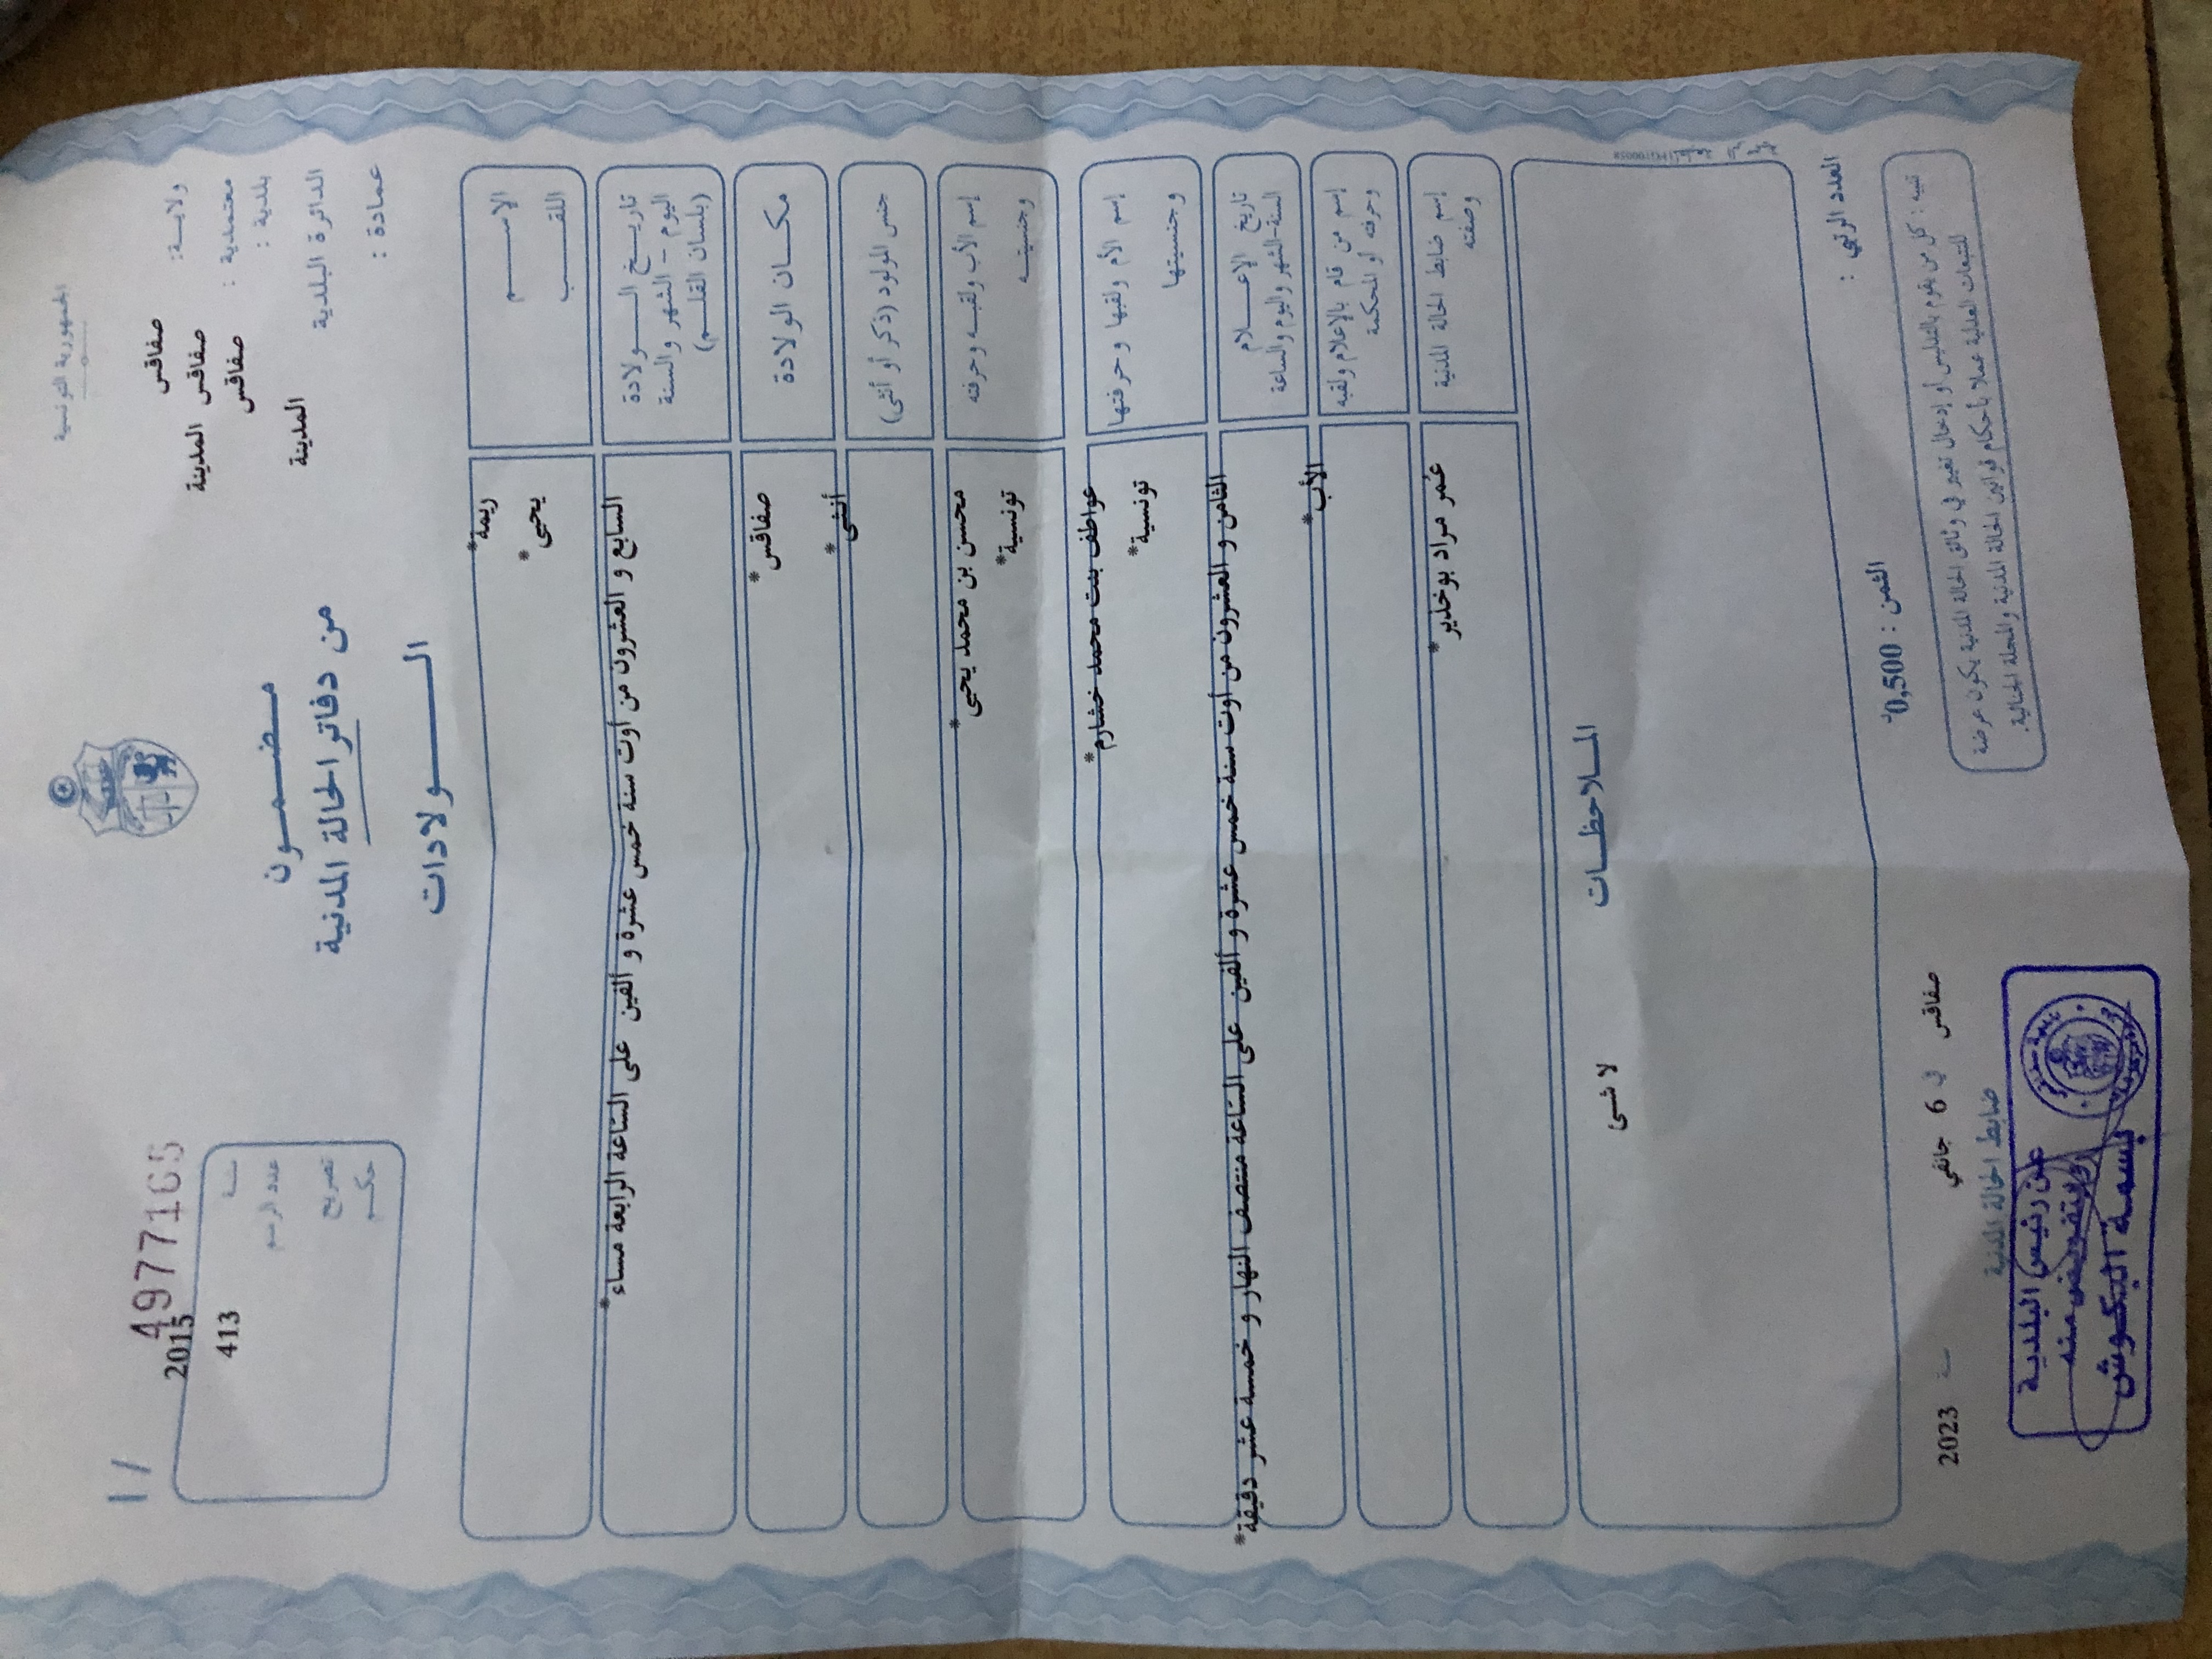 الجمهورية التونسية
49771165
ولايـة: صفاقس
معتمدية : صفاقس المدينة
بلدية : صفاقس
الدائرة البلدية المدينة
عمادة :
مضمون
من دفاتر الحالة المدنية
الولادات
سنة 2015
عدد الرسم 413
تصريح
حكم
الإسم *ريمة
اللقب *يحيى
تاريخ الولادة
اليوم - الشهر والسنة
(بلسان القلم)
السابع و العشرون من أوت سنة خمس عشرة و ألفين على الساعة الرابعة مساء*
مكان الولادة *صفاقس
جنس المولود (ذكر أو أنثى) *أنثى
إسم الأب ولقبه وحرفته محسن بن محمد يحيى*
وجنسيته *تونسية
إسم الأم ولقبها وحرفتها عواطف بنت محمد خشارم*
وجنسيتها *تونسية
تاريخ الإعلام
السنة-الشهر واليوم والساعة
الثامن و العشرون من أوت سنة خمس عشرة و ألفين على الساعة منتصف النهار و خمسة عشر دقيقة*
إسم من قام بالإعلام ولقبه
وحرفته او المحكمة
*الأب
إسم ضابط الحالة المدنية
وصفته
عمر مراد بوخذير*
الملاحظات
لا شئ
العدد الرتبي :
الثمن : 0,500د
صفاقس في 6 جانفي سنة 2023
ضابط الحالة المدنية
تنبيه : كل من يقوم بالتدليس أو إدخال تغيير في وثائق الحالة المدنية يكون عرضة
للتتبعات العدلية عملا بأحكام قوانين الحالة المدنية والمجلة الجنائية.
عن رئيس البلدية
وبتفويض منه
بسمة البكوش